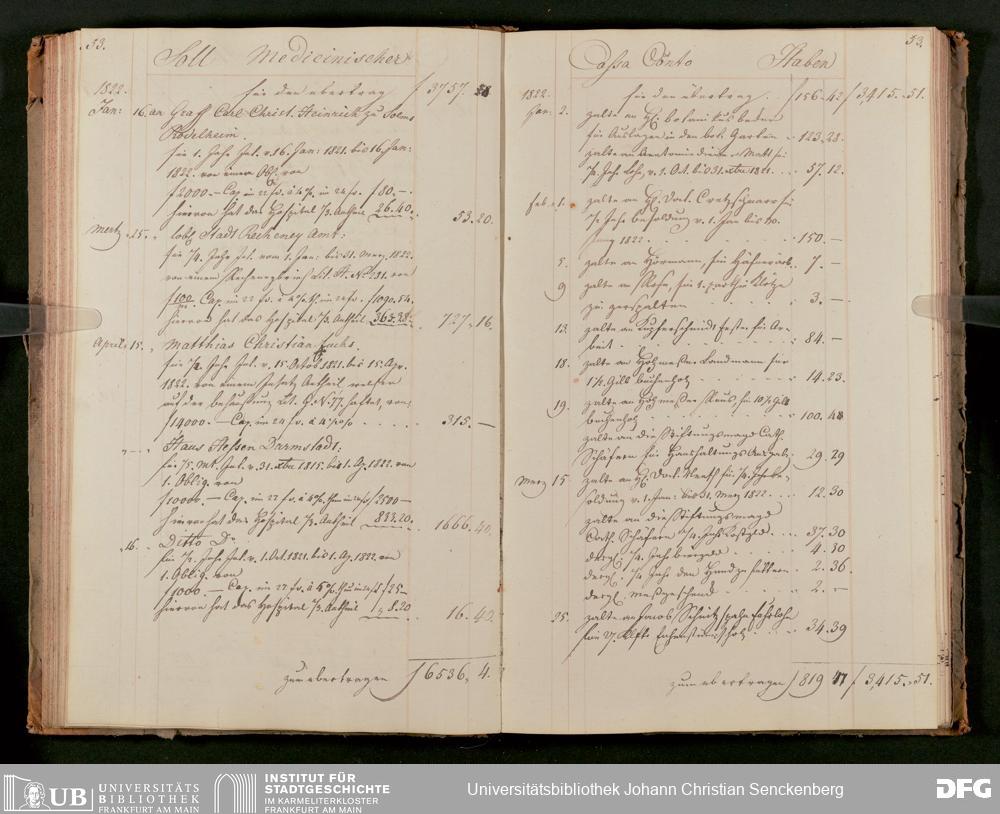 53.
Soll Medicinischer
1822. für den übertrag f 3757. 28
Jan: 16. an Graff Carl Christ. Heinrich zu Solms
Rödelheim.
für 1. Jahr Int. v. 16. Jan: 1821. bis 16 Jan:
1822. von einer Obl. von
f 2000.– Cap. in 22 fr. à 4 % in 24 fr. f 80.–.
hiervon hat das Hospital 1/3. Antheil 26.40. 53.20.
Mertz 25. " Löbl. Stadt Recheney Amt.
für 1/4 Jahr Int. vom 1. Jan: bis 31. Merz. 1822.
von einem Recheneybrief Lit. H. No. 231. von
Cap. in 22 fr. à 4 % in 24 fr. f 1090.54.
hiervon hat das Hospital 1/3. Antheil 363.38. 727.16.
April 15. " Matthias Christian Fuchs.
für 1/2 Jahr Int. v. 15. Octob 1821. bis 15. Apr.
1822. von einem Insatz Antheil welcher
auf der behaußung Lit. G. N. 77. haftet, von
f 14000.– Cap. in 24 fr. à 4 1/2 % 315.–
" – " Haus Hessen Darmstadt:
v. 31. Xbr 1815. bis 1. Ap. 1822. von
1. Oblig. von
f 10000.– Cap. in 22 fr. à 4 % f 2500–
hiervon hat das Hospital 1/3 Antheil 833.20. 1666.40.
" 16. " Ditto Do
für 1/2 Jahr Int. v. 1. Oct. 1821. bis 1. Ap. 1822. von
1. Oblig. von
f 1000.– Cap. in 22 fr. à 5 % f 25–
hiervon hat das Hospital 1/3 Antheil " 8.20 16.40.
zum übertragen f 6536. 4.
53.
Cassa Conto Haben
1822. für den übertrag f 156.42 f 3,415.51.
Jan: 2. zalte an H. botanikus Becker
für Auslagen in den bot. Garten 123.28.
zalte an Anatomie diener Matt für
1/4 Jahr Lohn, v. 1. Oct. bis 31. Xbr 1821 57.12.
feb. 1. zalte an H. Doct. Cretzschmar für
1/2 Jahr besoldung v. 1. Jan bis
Juny 1822. 150.–
5. zalte an Hörmann, für Häfnerarb. 7.–
9 zalte an Rose, für
zu zerspalten 3.–
13. zalte an Kupferschmidt für Ar-
beit 84.–
18. zalte an Holzmesser Landmann für
1 1/4 Gilb buchenholz 14.23.
19. zalte an Holzmesser für 10 1/2 Gilb
buchenholz 100.48
zalte an die Stiftungsmagd Cath.
Schäfern für Haushaltungs Ausgab. 29.29
Merz 15 zalte an H. Doct. Neeff für 1/4 Jahr be-
soldung v. 1. Jan: bis 31. Merz 1822 12.30
zalte an die Stiftungsmagd
Cath. Schäfern 1/4 Jahr Kostgeld 37.30
dergl. 1/4 Jahr 4.30
dergl. 1/4 Jahr den Hund zu füttern 2.36.
dergl. Meßgeschenk 2.–
25. zalte an Jacob Schütz
34.39
zum übertragen f 819 47 f 3,415.51.
UB UNIVERSITÄTS
BIBLIOTHEK
FRANKFURT AM MAIN
INSTITUT FÜR
STADTGESCHICHTE
IM KARMELITERKLOSTER
FRANKFURT AM MAIN
Universitätsbibliothek Johann Christian Senckenberg
DFG